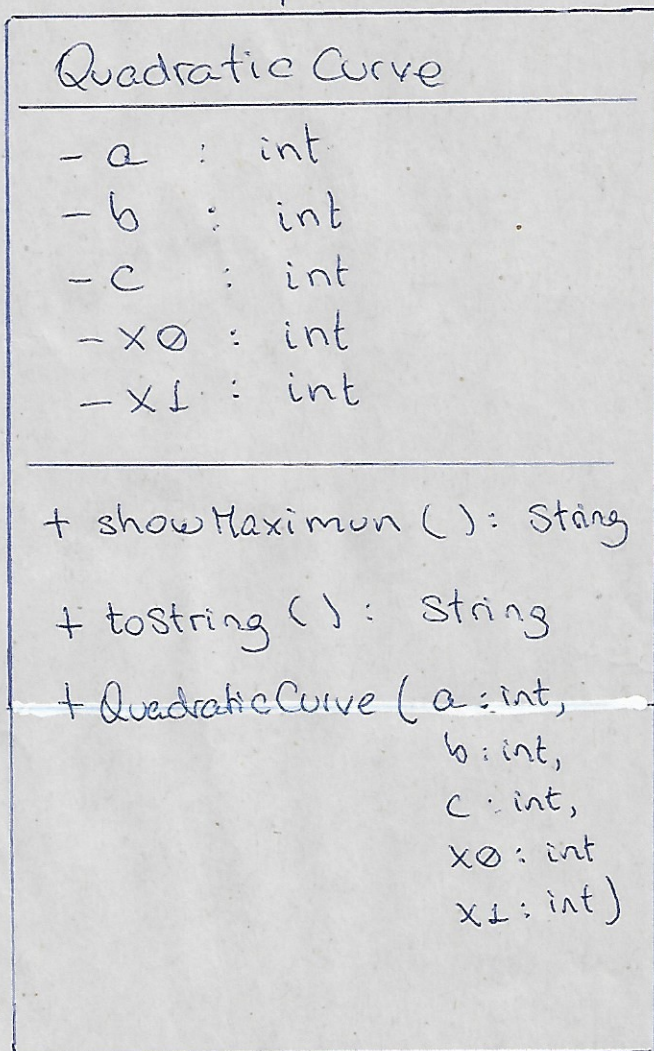 Quadratic Curve
- a : int
- b : int
- c : int
- x0 : int
- x1 : int
+ showMaximun ( ) : String
+ toString ( ) : String
+ QuadraticCurve ( a : int,
b : int,
c : int,
x0 : int
x1 : int )